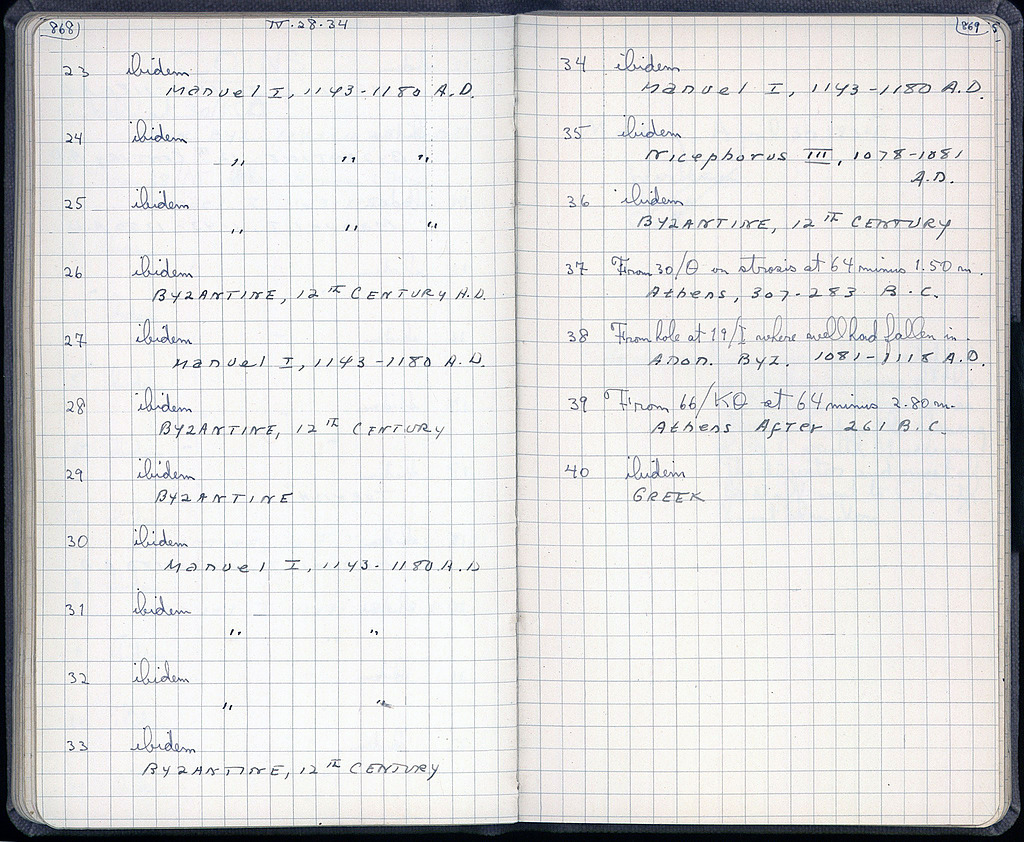 868
IV·28·34
23 ibidem
Manuel I, 1143-1180 A.D.
24 ibidem
" " "
25 ibidem
" " "
26 ibidem
BYZANTINE, 12TH CENTURY A.D.
27 ibidem
Manuel I, 1143-1180 A.D.
28 ibidem
BYZANTINE, 12TH CENTURY
29 ibidem
BYZANTINE
30 ibidem
Manuel I, 1143-1180 A.D
31 ibidem
" "
32 ibidem
" "
33 ibidem
BYZANTINE, 12TH CENTURY
869 5
34 ibidem
Manuel I, 1143-1180 A.D.
35 ibidem
Nicephorus III, 1078-1081
A.D.
36 ibidem
BYZANTINE, 12TH CENTURY
37 From 30/Θ on strosis at 64 minus 1.50 m.
Athens, 307-283 B.C.
38 From hole at 19/I where well had fallen in.
Anon. Byz. 1081-1118 A.D.
39 From 66/ΚΘ at 64 minus 2.80 m.
Athens After 261 B.C.
40 ibidem
GREEK